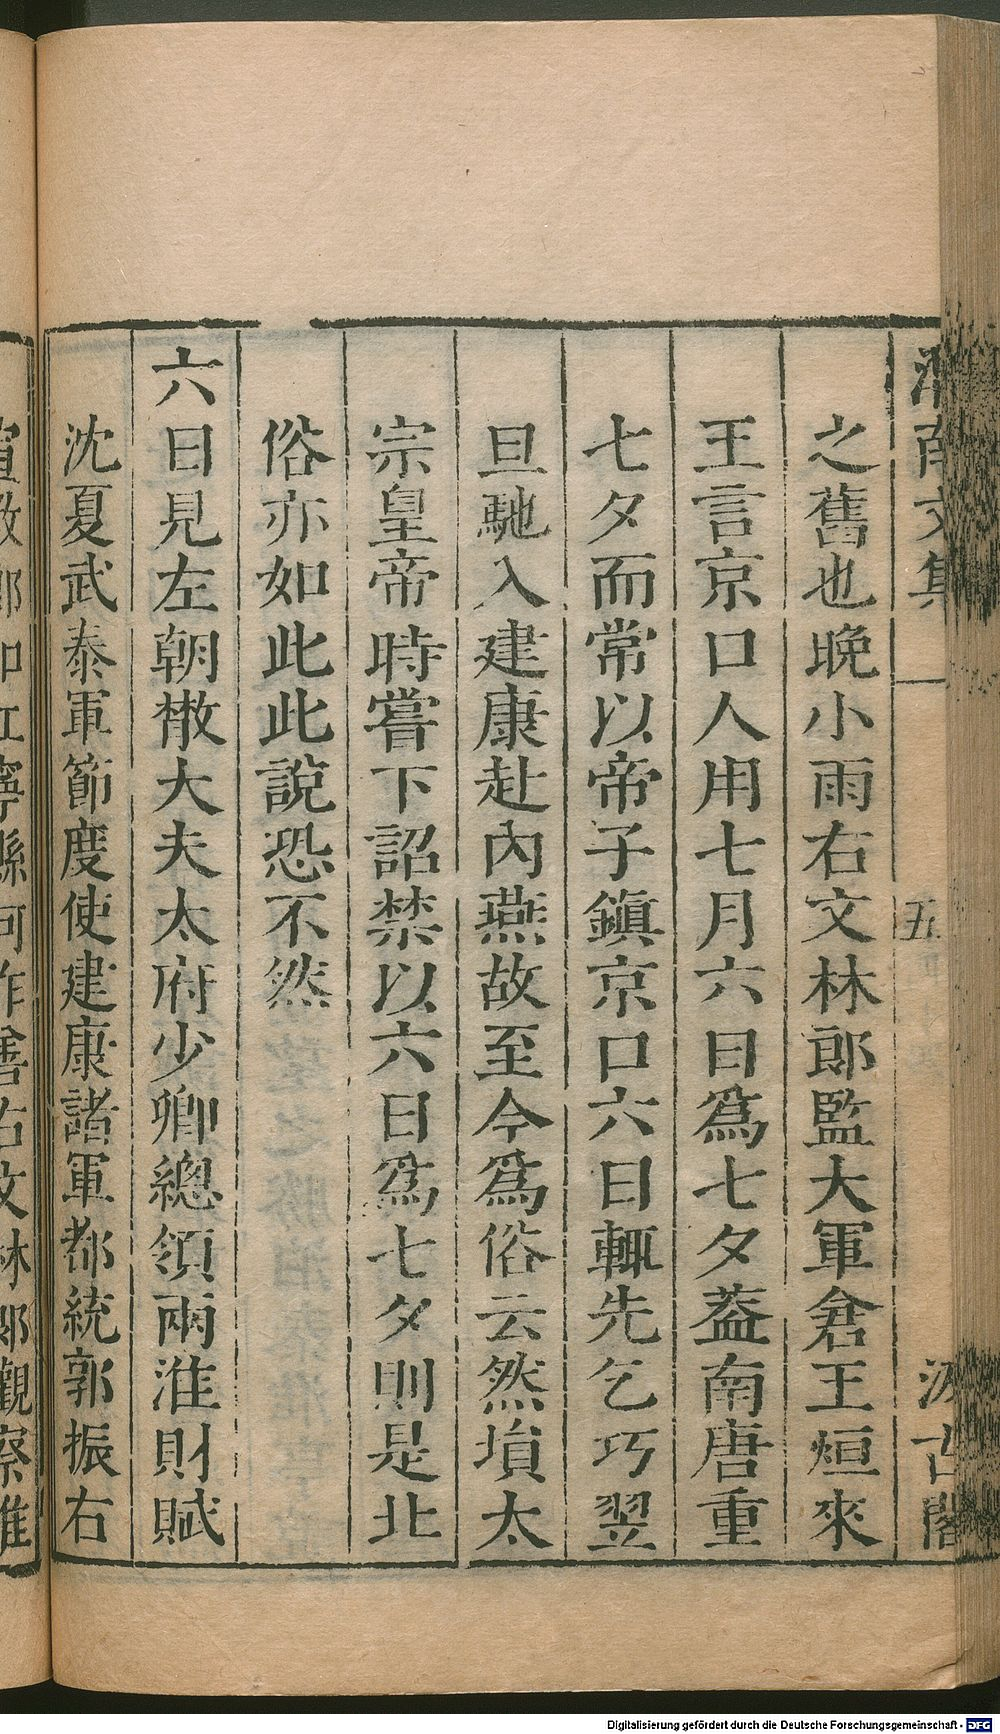 渭南文集
五
汲古閣
之舊也晚小雨右文林郎監大軍倉王烜來
王言京口人用七月六日爲七夕葢南唐重
七夕而常以帝子鎮京口六日輒先乞巧翌
旦馳入建康赴內燕故至今爲俗云然塤太
宗皇帝時嘗下詔禁以六日爲七夕則是北
俗亦如此此說恐不然
六日見左朝散大夫太府少卿總領兩淮財賦
沈夏武泰軍節度使建康諸軍都統郭振右
宣敎郎知江寧縣何作善右文林郎觀察推
Digitalisierung gefördert durch die Deutsche Forschungsgemeinschaft - DFG